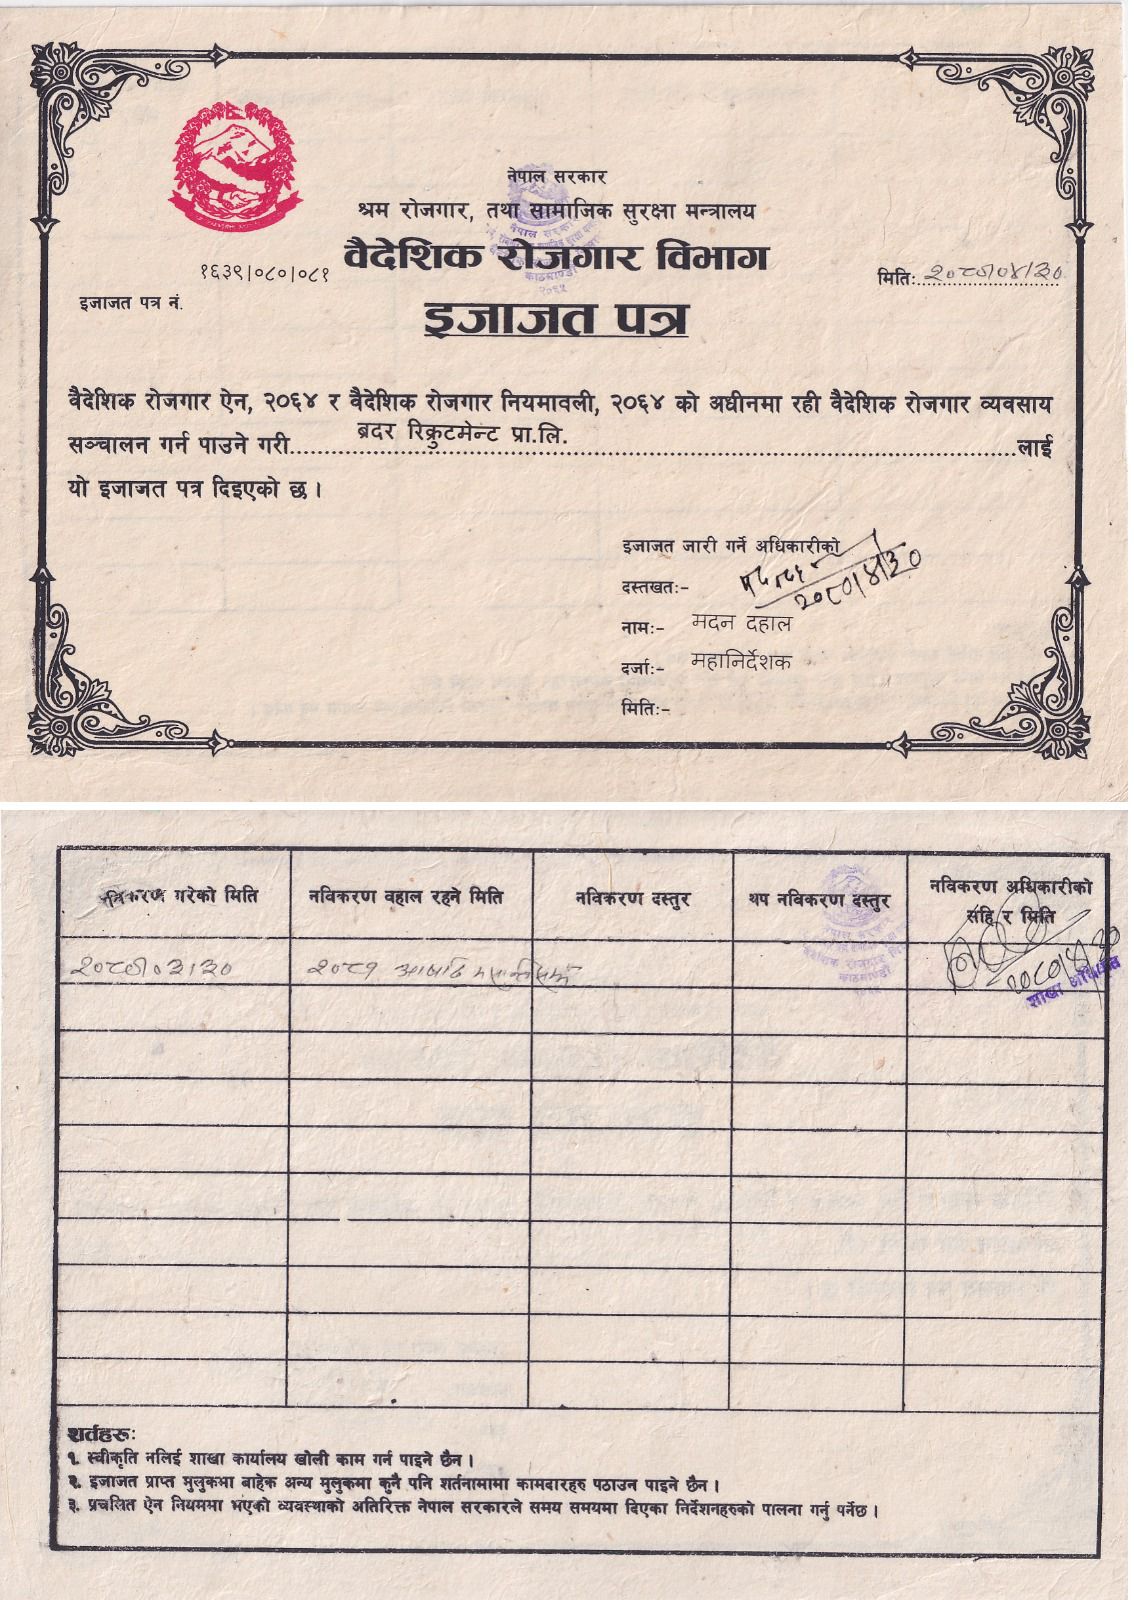 नेपाल सरकार
श्रम रोजगार, तथा सामाजिक सुरक्षा मन्त्रालय
वैदेशिक रोजगार विभाग
१६३९।०८०।०८१
मितिः २०८०।०४।३०
इजाजत पत्र नं.
इजाजत पत्र
वैदेशिक रोजगार ऐन, २०६४ र वैदेशिक रोजगार नियमावली, २०६४ को अधीनमा रही वैदेशिक रोजगार व्यवसाय
सञ्चालन गर्न पाउने गरी ब्रदर रिक्रुटमेन्ट प्रा.लि. लाई
यो इजाजत पत्र दिइएको छ ।
इजाजत जारी गर्ने अधिकारीको
दस्तखतः- २०८०।४।३०
नामः- मदन दहाल
दर्जाः- महानिर्देशक
मितिः-
नेपाल सरकार
वैदेशिक रोजगार विभाग
काठमाण्डौ
२०६५
नविकरण गरेको मिति नविकरण वहाल रहने मिति नविकरण दस्तुर थप नविकरण दस्तुर नविकरण अधिकारीको
सहि र मिति
२०८१ आषाढ २०८०।४।३०
शाखा अधिकृत
शर्तहरुः
१. स्वीकृति नलिई शाखा कार्यालय खोली काम गर्न पाइने छैन ।
२. इजाजत प्राप्त मुलुकमा बाहेक अन्य मुलुकमा कुनै पनि शर्तनामामा कामदारहरु पठाउन पाइने छैन ।
३. प्रचलित ऐन नियममा भएको व्यवस्थाको अतिरिक्त नेपाल सरकारले समय समयमा दिएका निर्देशनहरुको पालना गर्नु पर्नेछ ।